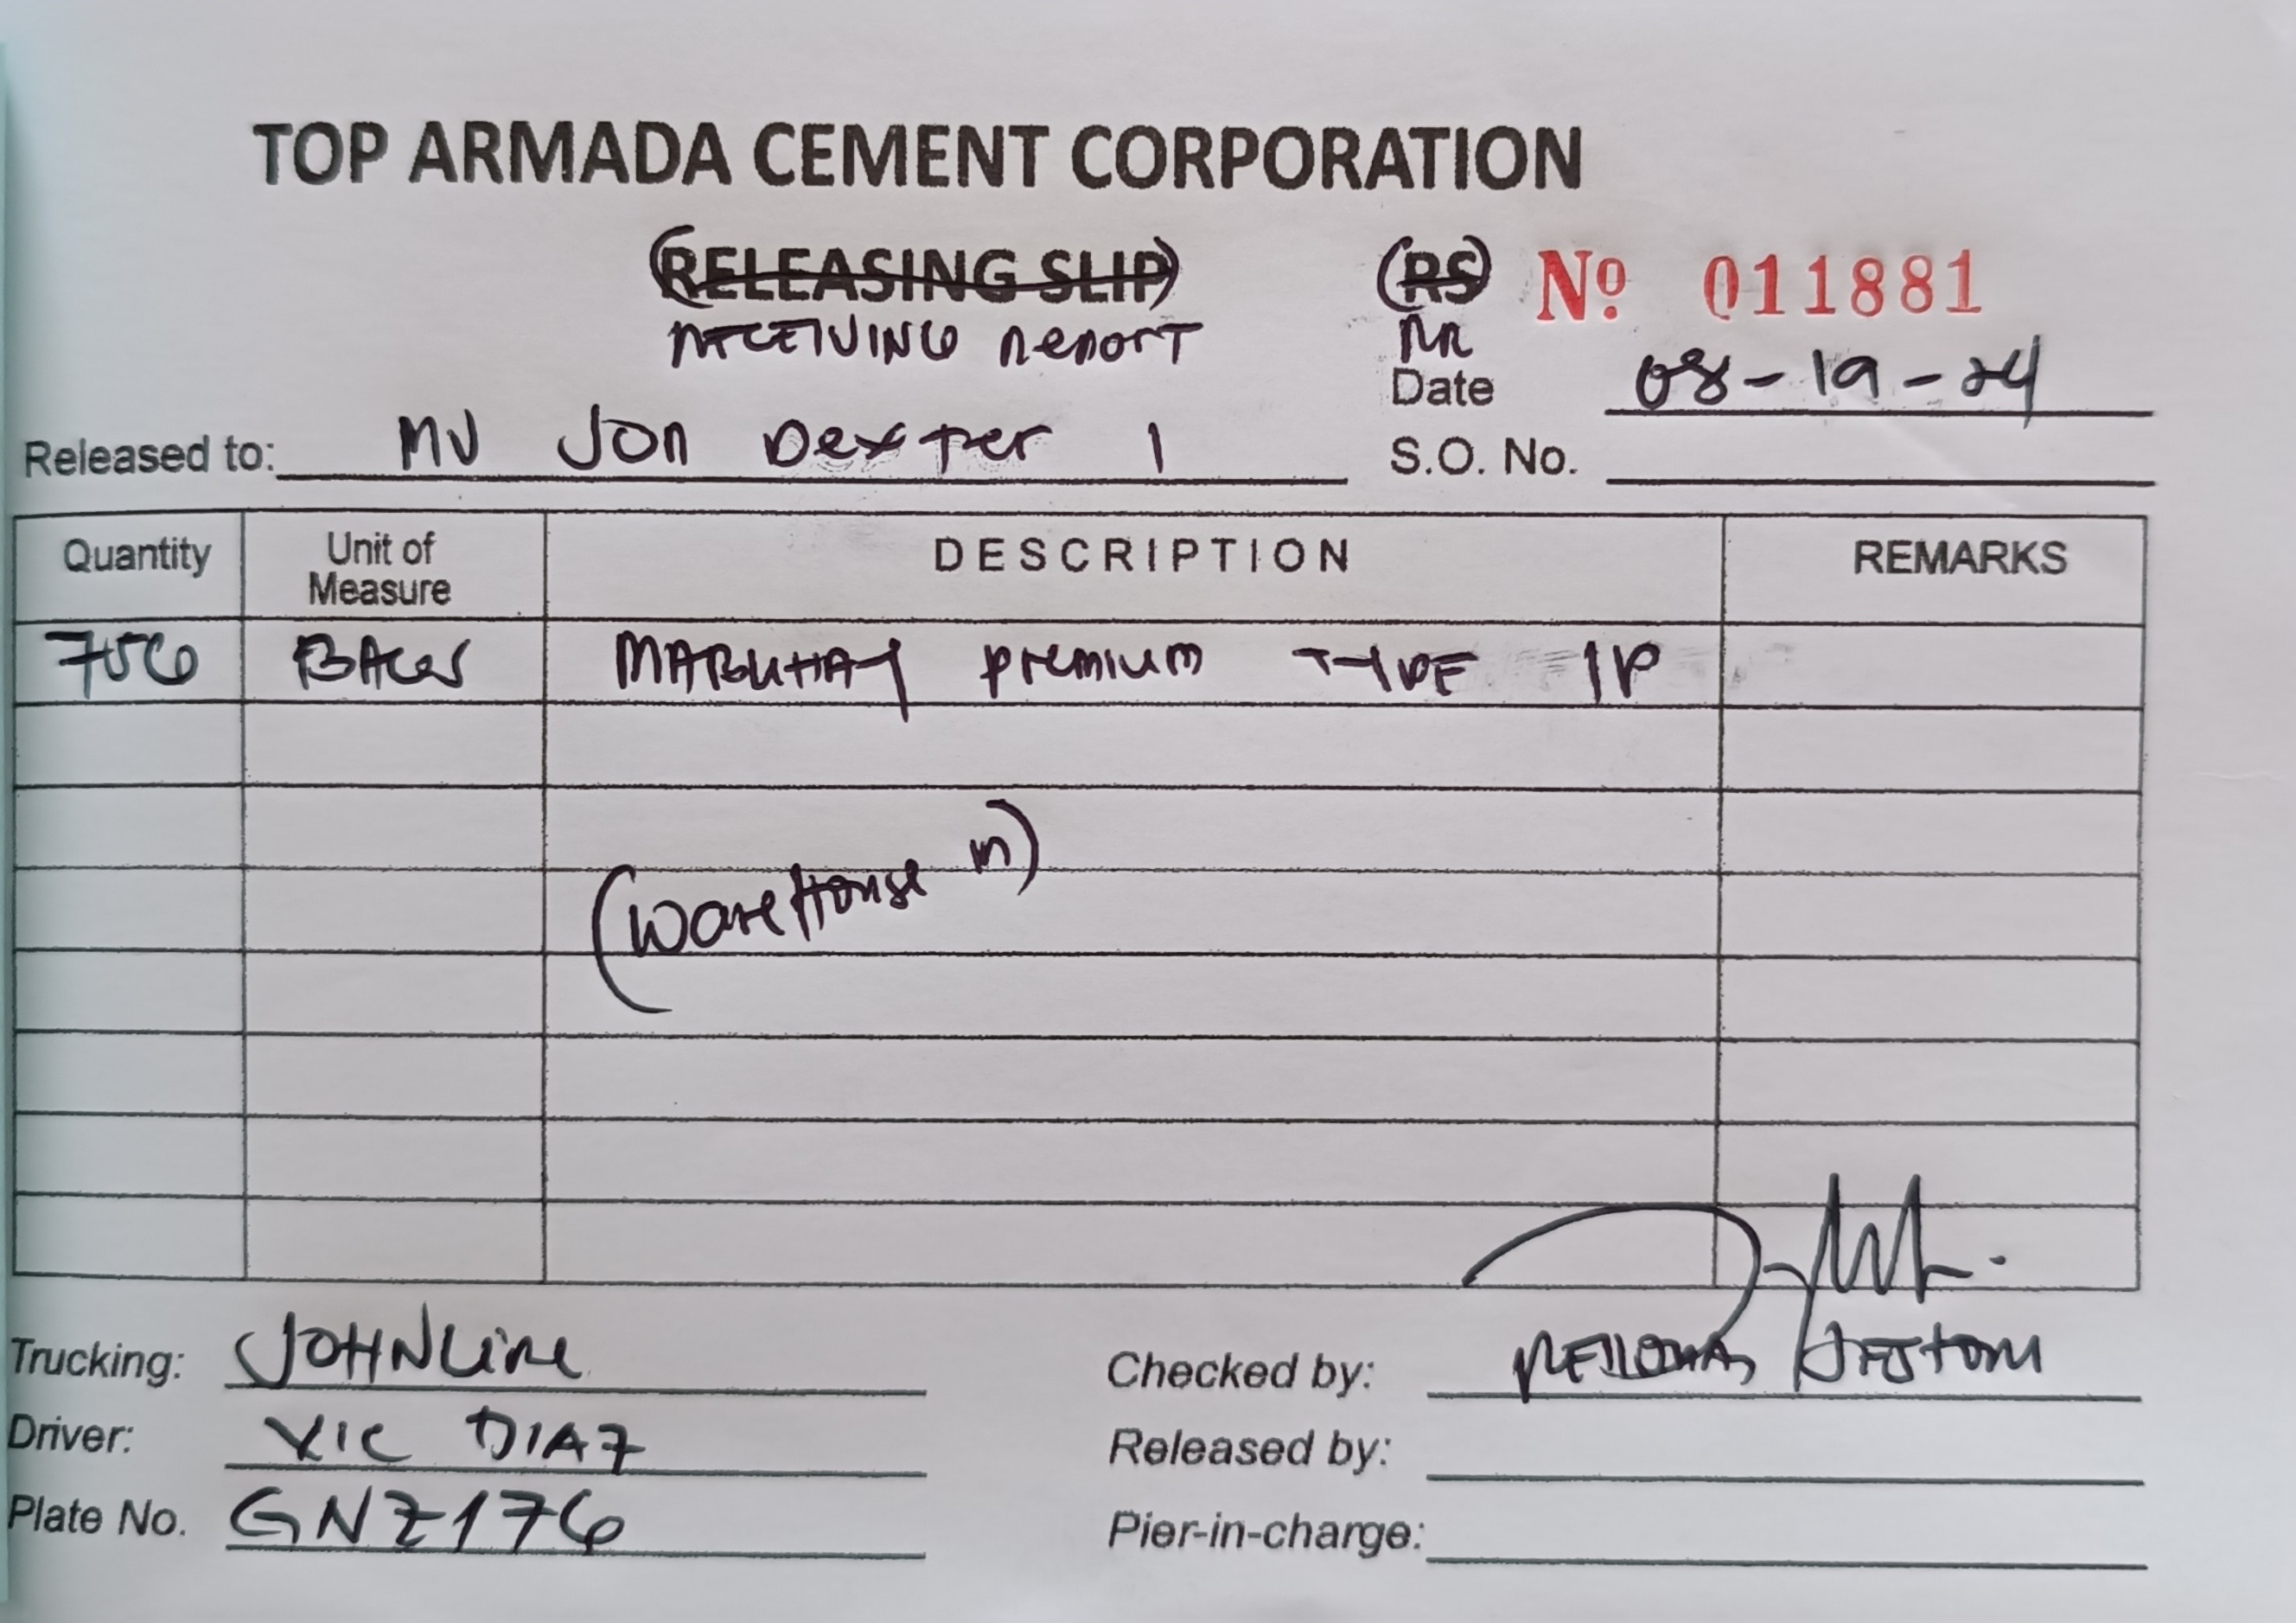 TOP ARMADA CEMENT CORPORATION
(RELEASING SLIP) (RS) Nº 011881
RECEIVING REPORT RR
Date 08-19-24
Released to: MV JON Dexter 1 S.O. No.
Quantity Unit of Measure DESCRIPTION REMARKS
756 BAGS MABUHAY premium TYPE 1P
(WareHouse in)
Trucking: JOHNLINE Checked by:
Driver: VIC DIAZ Released by:
Plate No. GNZ176 Pier-in-charge: